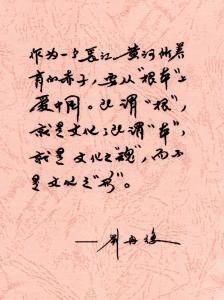 作为一个长江、黄河哺养
育的赤子，要从“根本”上
爱中国。所谓“根”，
就是文化；所谓“本”，
就是文化之“魂”，而不
是文化之“形”。
——刘再复